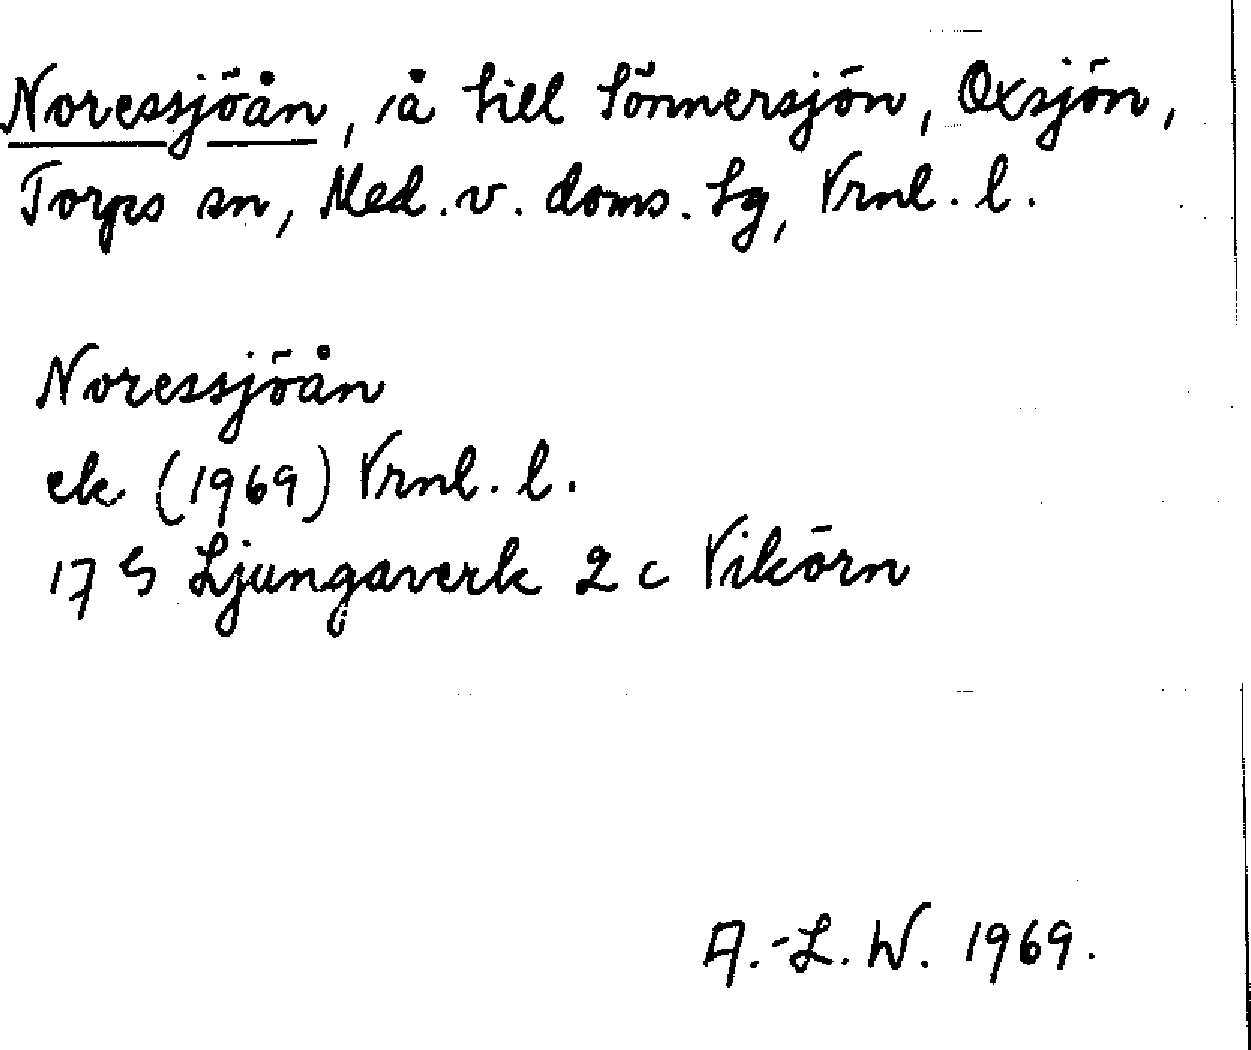 Noressjöån, å till Tönnersjön, Oxsjön,
Torps sn, Med. v. doms. tg, Vrnl. l.
Noressjöån
ek (1969) Vrnl. l.
17 G Ljungaverk 2 c Vikörn
A.-L. W. 1969.